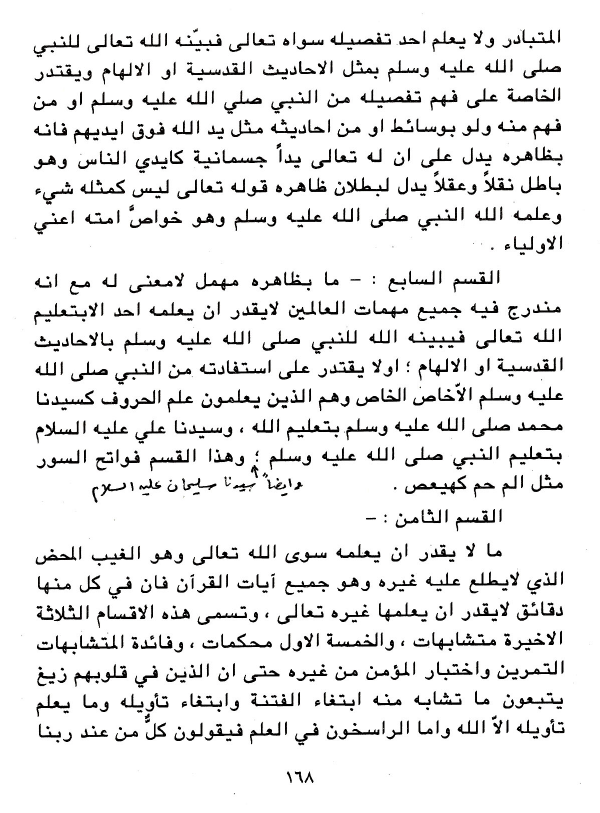 المتبادر ولا يعلم احد تفصيله سواه تعالى فبيّنه الله تعالى للنبي
صلى الله عليه وسلم بمثل الاحاديث القدسية او الالهام ويقتدر
الخاصة على فهم تفصيله من النبي صلي الله عليه وسلم او من
فهم منه ولو بوسائط او من احاديثه مثل يد الله فوق ايديهم فانه
بظاهره يدل على ان له تعالى يداً جسمانية كايدي الناس وهو
باطل نقلاً وعقلاً يدل لبطلان ظاهره قوله تعالى ليس كمثله شيء
وعلمه الله النبي صلى الله عليه وسلم وهو خواصَّ امته اعني
الاولياء .
القسم السابع : – ما بظاهره مهمل لامعنى له مع انه
مندرج فيه جميع مهمات العالمين لايقدر ان يعلمه احد الابتعليم
الله تعالى فيبينه الله للنبي صلى الله عليه وسلم بالاحاديث
القدسية او الالهام ؛ اولا يقتدر على استفادته من النبي صلى الله
عليه وسلم الاّخاص الخاص وهم الذين يعلمون علم الحروف كسيدنا
محمد صلى الله عليه وسلم بتعليم الله ، وسيدنا علي عليه السلام
بتعليم النبي صلى الله عليه وسلم ؛ وهذا القسم فواتح السور
مثل الم حم كهيعص .
وايضاً سيدنا سليمان عليه السلام
القسم الثامن : –
ما لا يقدر ان يعلمه سوى الله تعالى وهو الغيب المحض
الذي لايطلع عليه غيره وهو جميع آيات القرآن فان في كل منها
دقائق لايقدر ان يعلمها غيره تعالى ، وتسمى هذه الاقسام الثلاثة
الاخيرة متشابهات ، والخمسة الاول محكمات ، وفائدة المتشابهات
التمرين واختبار المؤمن من غيره حتى ان الذين في قلوبهم زيغ
يتبعون ما تشابه منه ابتغاء الفتنة وابتغاء تأويله وما يعلم
تأويله الاّ الله واما الراسخون في العلم فيقولون كلٌّ من عند ربنا
١٦٨